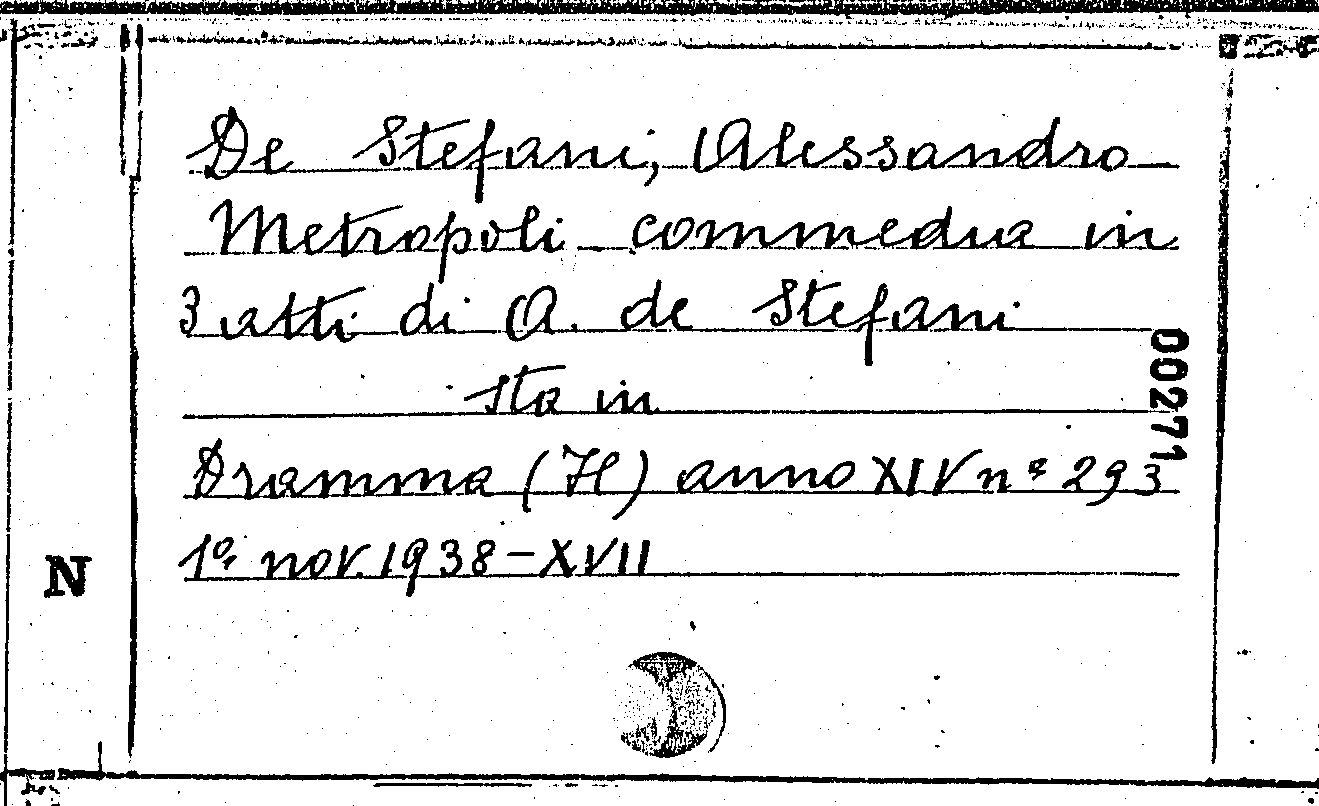 De Stefani, Alessandro
Metropoli commedia in
3 atti di A. de Stefani
sta in
Dramma (Il) anno XIV nº 293
1º nov. 1938-XVII
00271
N